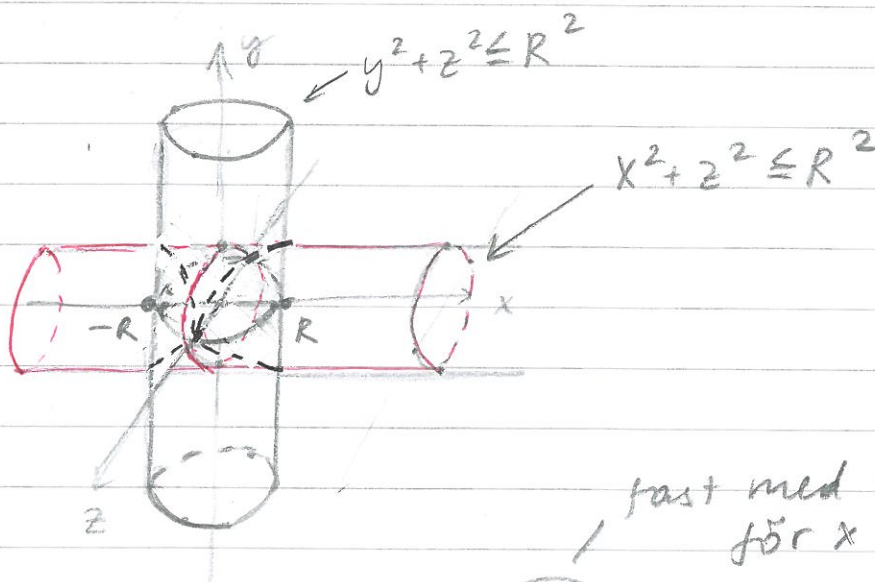 y
y² + z² ≤ R²
x² + z² ≤ R²
x
-R
R
z
fast med
för x